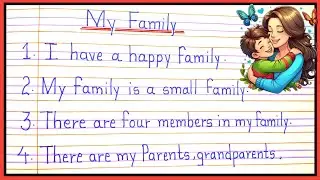 My Family
1. I have a happy family.
2. My family is a small family.
3. There are four members in my family.
4. There are my Parents, grandparents.